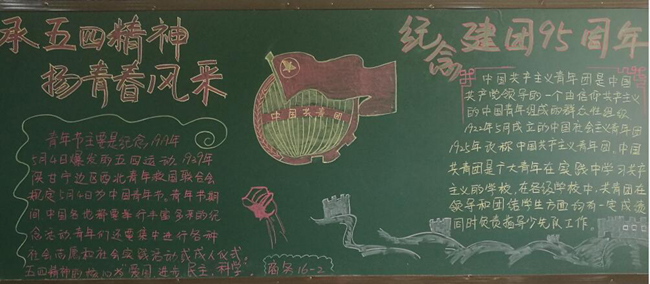 承五四精神
扬青春风采
纪念建团95周年
青年节主要是纪念1919年
5月4日爆发的五四运动,1939年
陕甘宁边区西北青年救国联合会
规定5月4日为中国青年节。青年节期
间中国各地都要举行丰富多采的纪
念活动青年们还要集中进行各种
社会志愿和社会实践活动或成人仪式;
五四精神的核心为爱国、进步、民主、科学。
商务16-2
中国共青团
中国共产主义青年团是中国
共产党领导的一个由信仰共产主义
的中国青年组成的群众性组织
1922年5月成立的中国社会主义青年团
1925年改称中国共产主义青年团,中国
共青团是广大青年在实践中学习共产
主义的学校,在各级学校中,共青团在
领导和团结学生方面均有一定成
同时负责指导少先队工作。